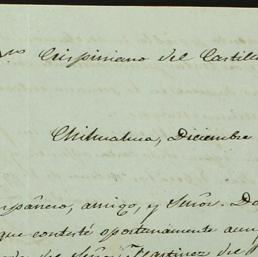 Crispiniano del Castillo
Chihuahua, Diciembre
compañero, amigo, y Señor. Do
que contesté oportunamente aun
del Señor Martinez del